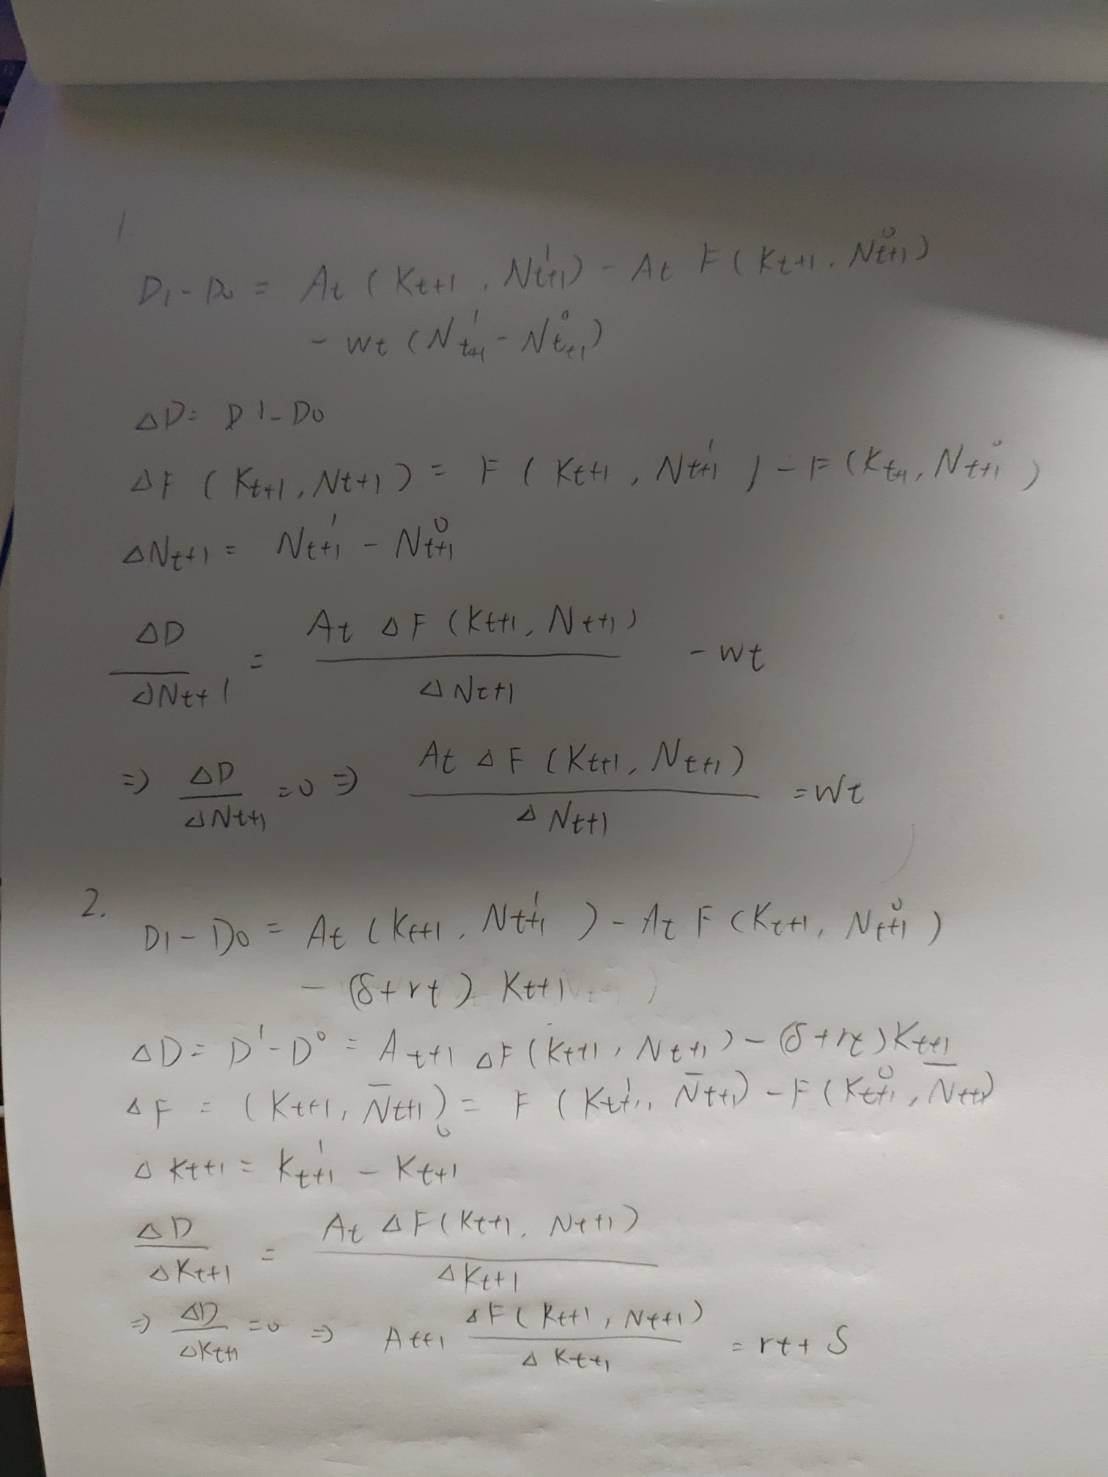 1
D1 - D0 = At (Kt+1, N¹t+1) - At F (Kt+1, N⁰t+1)
- wt (N¹t+1 - N⁰t+1)
ΔD = D1 - D0
ΔF (Kt+1, Nt+1) = F (Kt+1, N¹t+1) - F (Kt+1, N⁰t+1)
ΔNt+1 = N¹t+1 - N⁰t+1
ΔD / ΔNt+1 = At ΔF (Kt+1, Nt+1) / ΔNt+1 - wt
⇒ ΔD / ΔNt+1 = 0 ⇒ At ΔF (Kt+1, Nt+1) / ΔNt+1 = wt
2.
D1 - D0 = At (Kt+1, N¹t+1) - At F (Kt+1, N⁰t+1)
- (δ + rt) Kt+1
ΔD = D¹ - D⁰ = At+1 ΔF (Kt+1, Nt+1) - (δ + rt) Kt+1
ΔF = (Kt+1, N̄t+1) = F (K¹t+1, N̄t+1) - F (K⁰t+1, N̄t+1)
ΔKt+1 = K¹t+1 - K⁰t+1
ΔD / ΔKt+1 = At ΔF (Kt+1, Nt+1) / ΔKt+1
⇒ ΔD / ΔKt+1 = 0 ⇒ At+1 ΔF (Kt+1, Nt+1) / ΔKt+1 = rt + δ